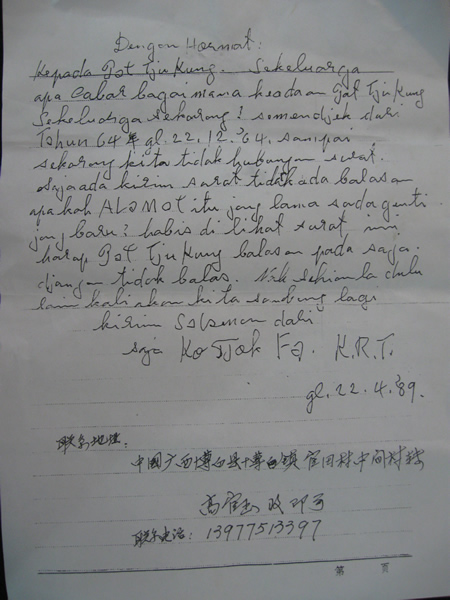 Dengan Hormat:
Kepada Got Tjukung. Sekeluarga
apa cabar bagaimana keadaan Got Tjukung
Sekeluarga sekarang? semendjek dari
Tahun 64年 gl. 22. 12. '64. sampai
sekarang kita tidak hubungan surat.
saja ada kirim surat tidak ada balasan
apakah ALAMAT itu jang lama suda ganti
jang baru? habis di lihat surat ini
harap Got Tjukung balasan pada saja.
djangan tidak balas. sekian la dulu
lain kali akan kita sambung lagi
kirim Salaman dari
saja Ko Tjok Fa. K.R.T.
gl. 22. 4. '89.
联系地址:
中国广西博白县博白镇官田村中间村
高官玉 收即可
联系电话: 13977513397
第 页